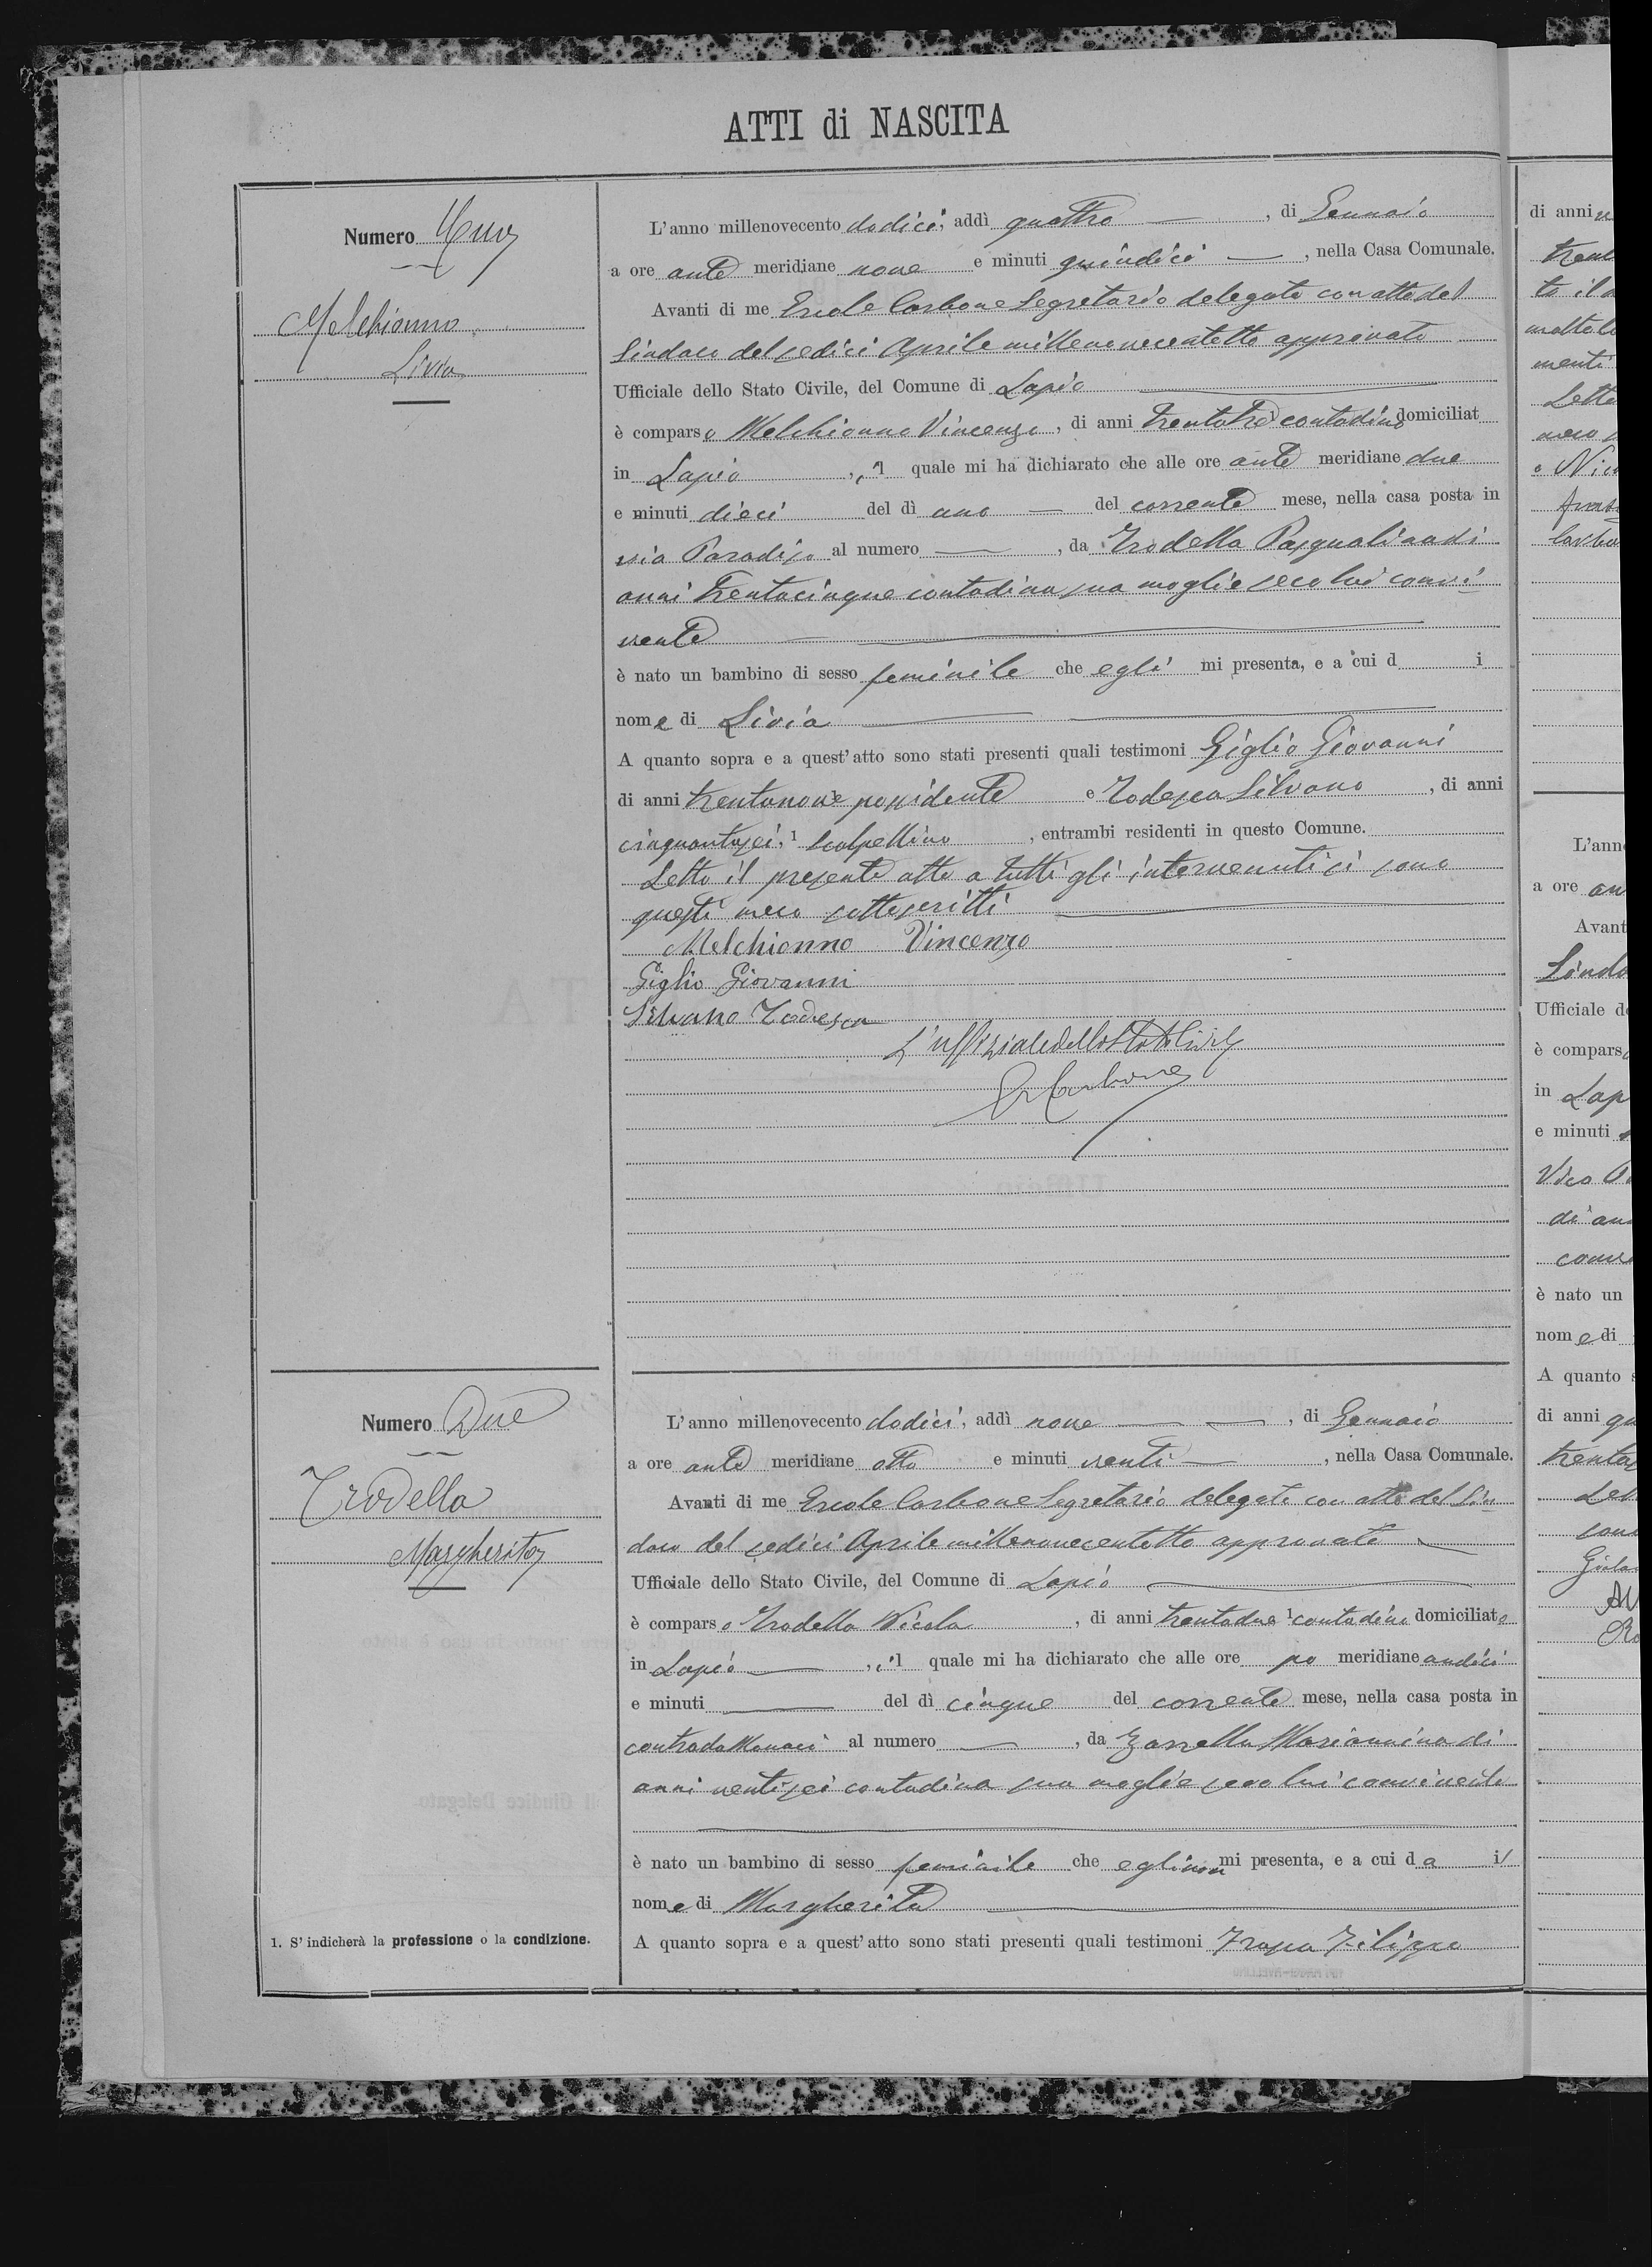 ATTI di NASCITA
Numero Uno
Melchionno
Livia
L'anno millenovecento dodici, addì quattro, di Gennaio
a ore ante meridiane nove e minuti quindici, nella Casa Comunale.
Avanti di me Ercole Carbone Segretario delegato con atto del
Sindaco del sedici Aprile millenovecentotto approvato
Ufficiale dello Stato Civile, del Comune di Lapio
è comparso Melchionno Vincenzo, di anni trentatre contadino domiciliat
in Lapio, il quale mi ha dichiarato che alle ore ante meridiane due
e minuti dieci del dì uno del corrente mese, nella casa posta in
via Paradiso al numero, da Trodella Pasqualina di
anni trentacinque contadina sua moglie seco lui convi
vente
è nato un bambino di sesso feminile che egli mi presenta, e a cui d i
nome di Livia
A quanto sopra e a quest'atto sono stati presenti quali testimoni Giglio Giovanni
di anni trentanove possidente e Todesca Silvano, di anni
cinquantasei, 1 scalpellino, entrambi residenti in questo Comune.
Letto il presente atto a tutti gli intervenuti si sono
questi meco sottoscritti
Melchionno Vincenzo
Giglio Giovanni
Silvano Todesca
L'uffiziale dello Stato Civile
E. Carbone
Numero Due
Trodella
Margherita
L'anno millenovecento dodici, addì nove, di Gennaio
a ore ante meridiane otto e minuti venti, nella Casa Comunale.
Avanti di me Ercole Carbone Segretario delegato con atto del Sin
daco del sedici Aprile millenovecentotto approvato
Ufficiale dello Stato Civile, del Comune di Lapio
è comparso Trodella Nicola, di anni trentadue 1 contadino domiciliato
in Lapio, il quale mi ha dichiarato che alle ore po meridiane undici
e minuti del dì cinque del corrente mese, nella casa posta in
contrada Monaci al numero, da Zarrella Mariannina di
anni ventisei contadina sua moglie seco lui convivente
è nato un bambino di sesso feminile che egli non mi presenta, e a cui da il
nome di Margherita
A quanto sopra e a quest'atto sono stati presenti quali testimoni Filippo
1. S'indicherà la professione o la condizione.
di anni
to il
menti
Lette
meco
L'ann
a ore an
Avant
Sinda
Ufficiale d
è compars
in Lap
e minuti
Vico
di an
conv
è nato un
nome di
A quanto s
di anni qu
trenta
Let
sono